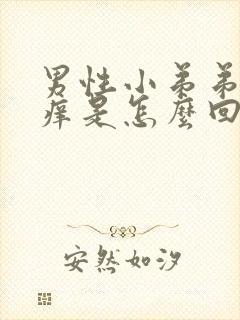 男性小弟弟
痒是怎麼回
安然如汐